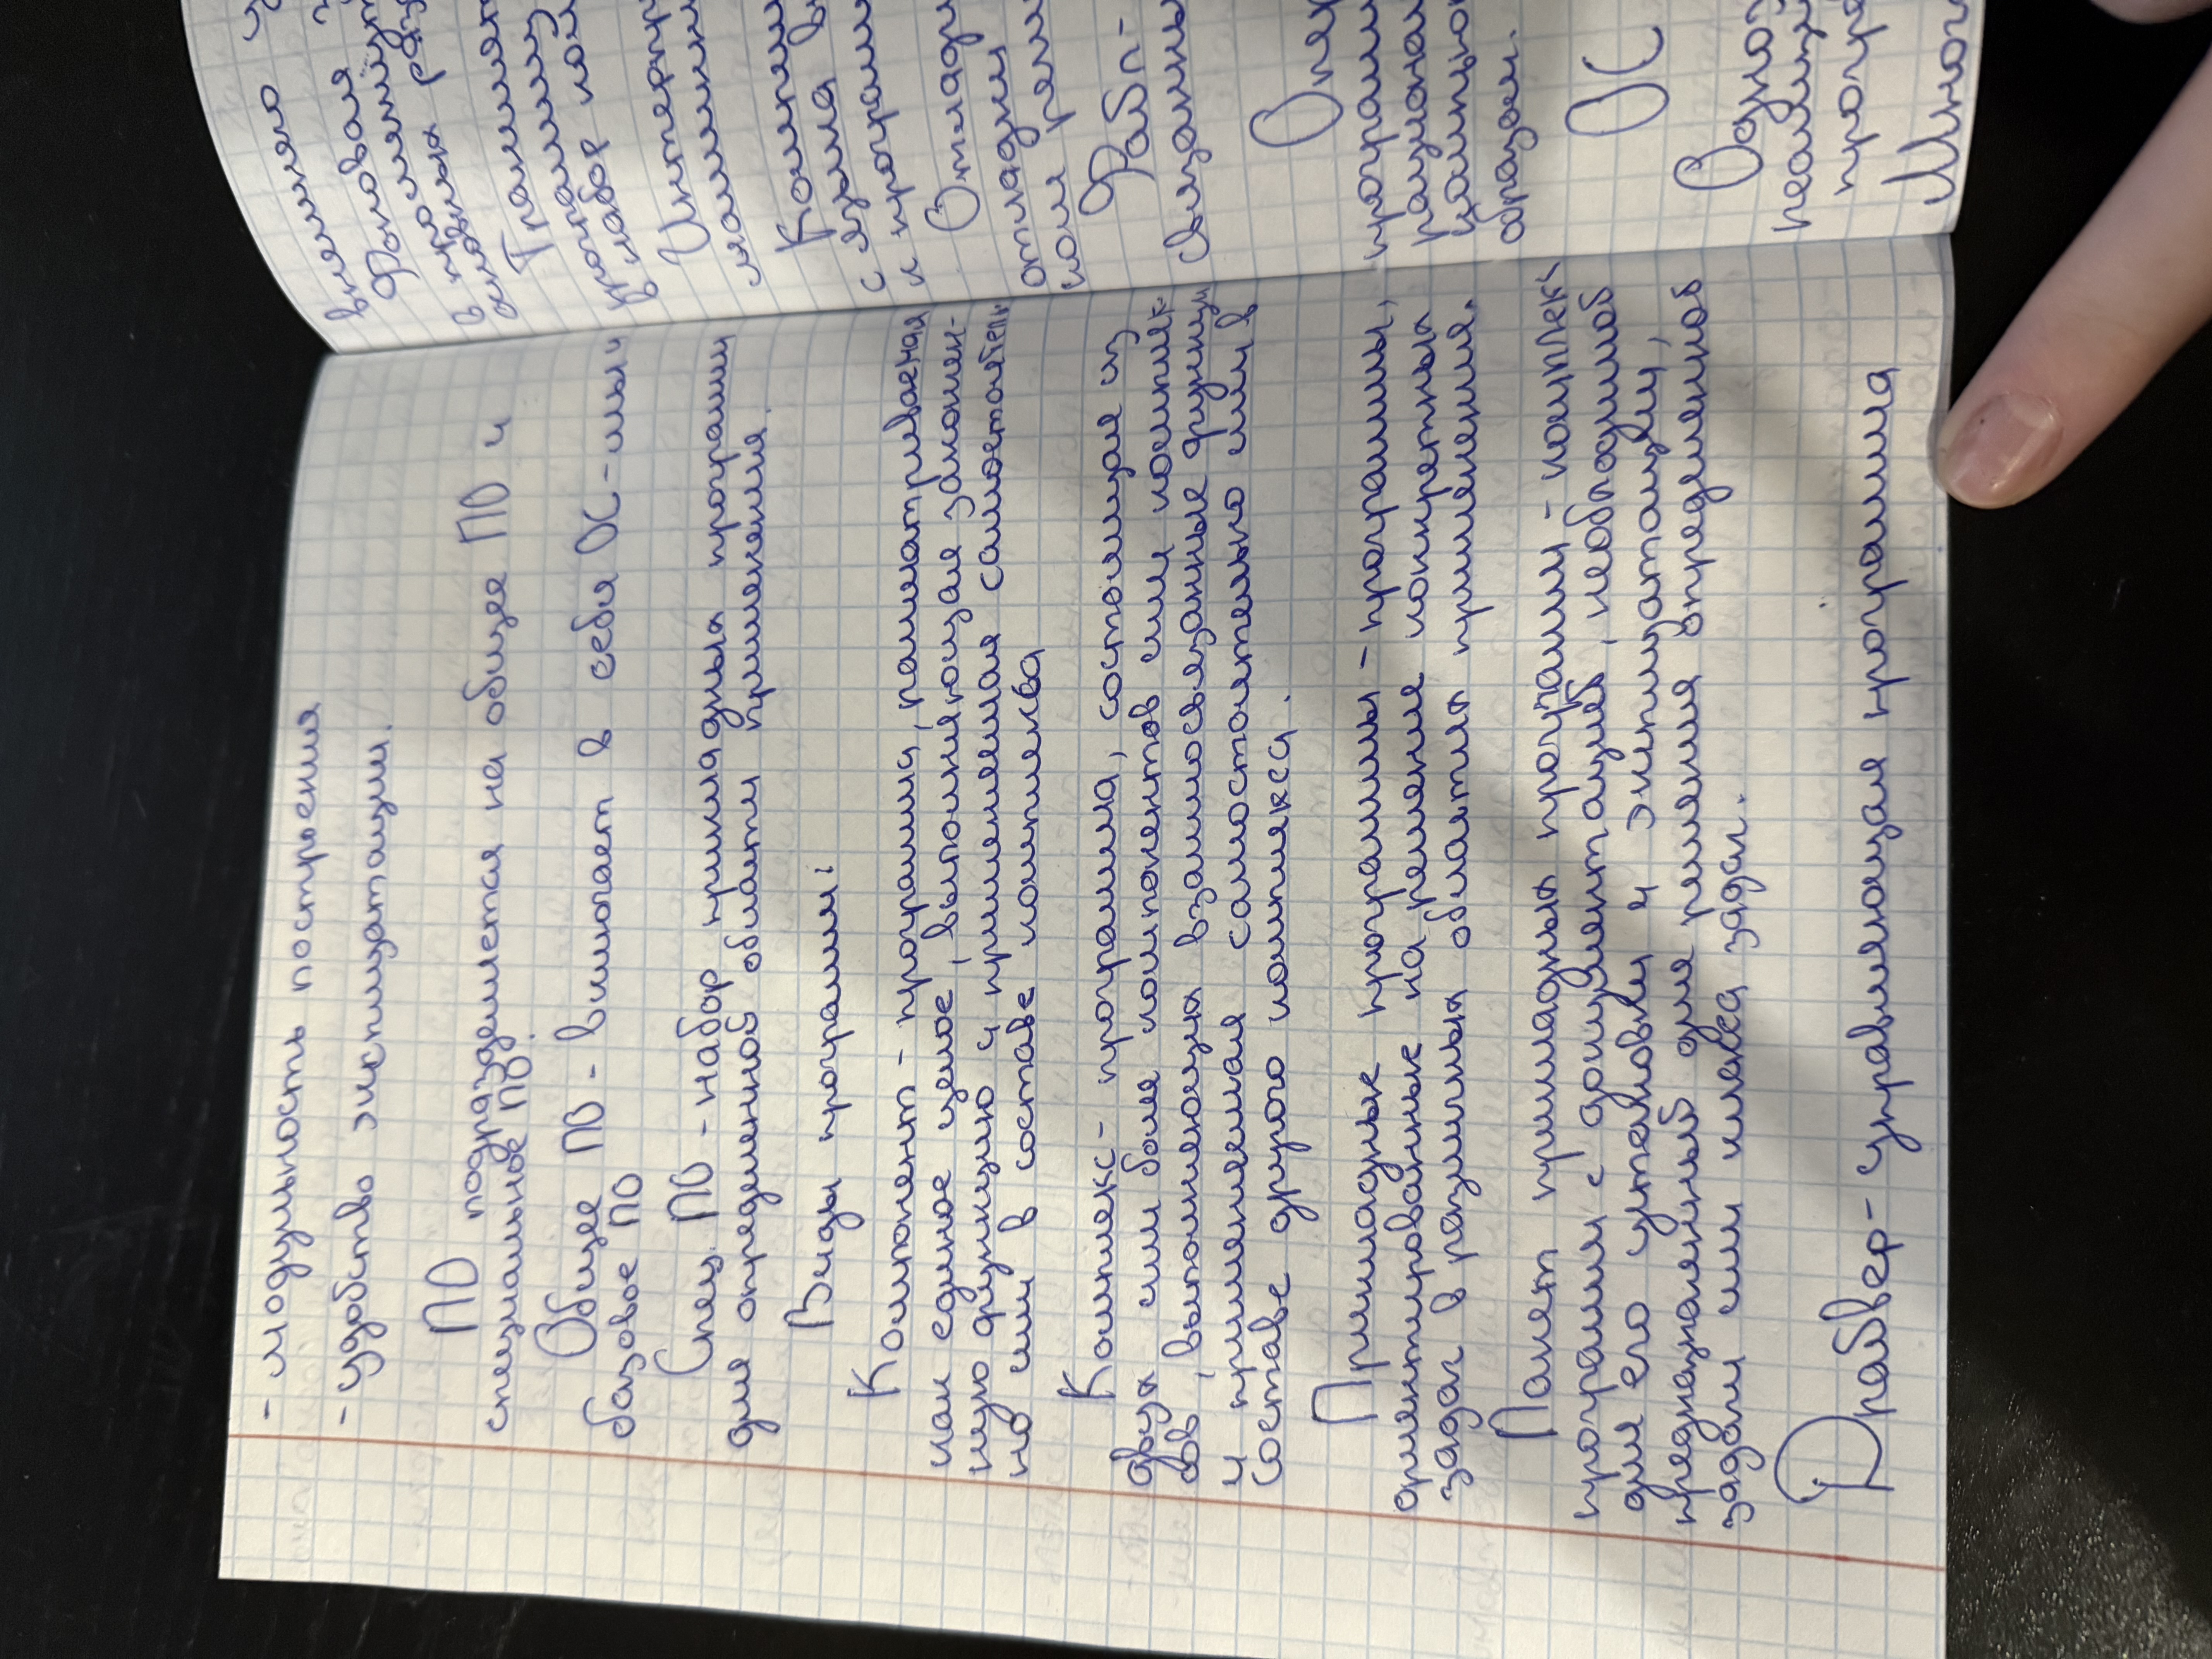 - модульность построения
- удобство эксплуатации.
ПО подразделяется на общее ПО и
специальное ПО.
Общее ПО - включает в себя ОС-мы и
базовое ПО
Спец. ПО - набор прикладных программ
для определенной области применения.
Виды программ:
Компонент - программа, рассматриваемая
как единое целое, выполняющая закончен-
ную функцию и применяемая самостоятель
но или в составе комплекса
Комплекс - программа, состоящая из
двух или более компонентов или комплек
сов, выполняющих взаимосвязанные функции
и применяемая самостоятельно или в
составе другого комплекса.
Прикладные программы - программы,
ориентированные на решение конкретных
задач в различных областях применения.
Пакет прикладных программ - комплекс
программ с документацией, необходимой
для его установки и эксплуатации,
предназначенный для решения определенной
задачи или класса задач.
Драйвер - управляющая программа
внешнего
в
Интерпр
Компил
с языка
и програм
Отладч
отладки
Файл-
связанны
Опер
програм
рационал
образом.
ОС
Одно
реализ
прогр
Много